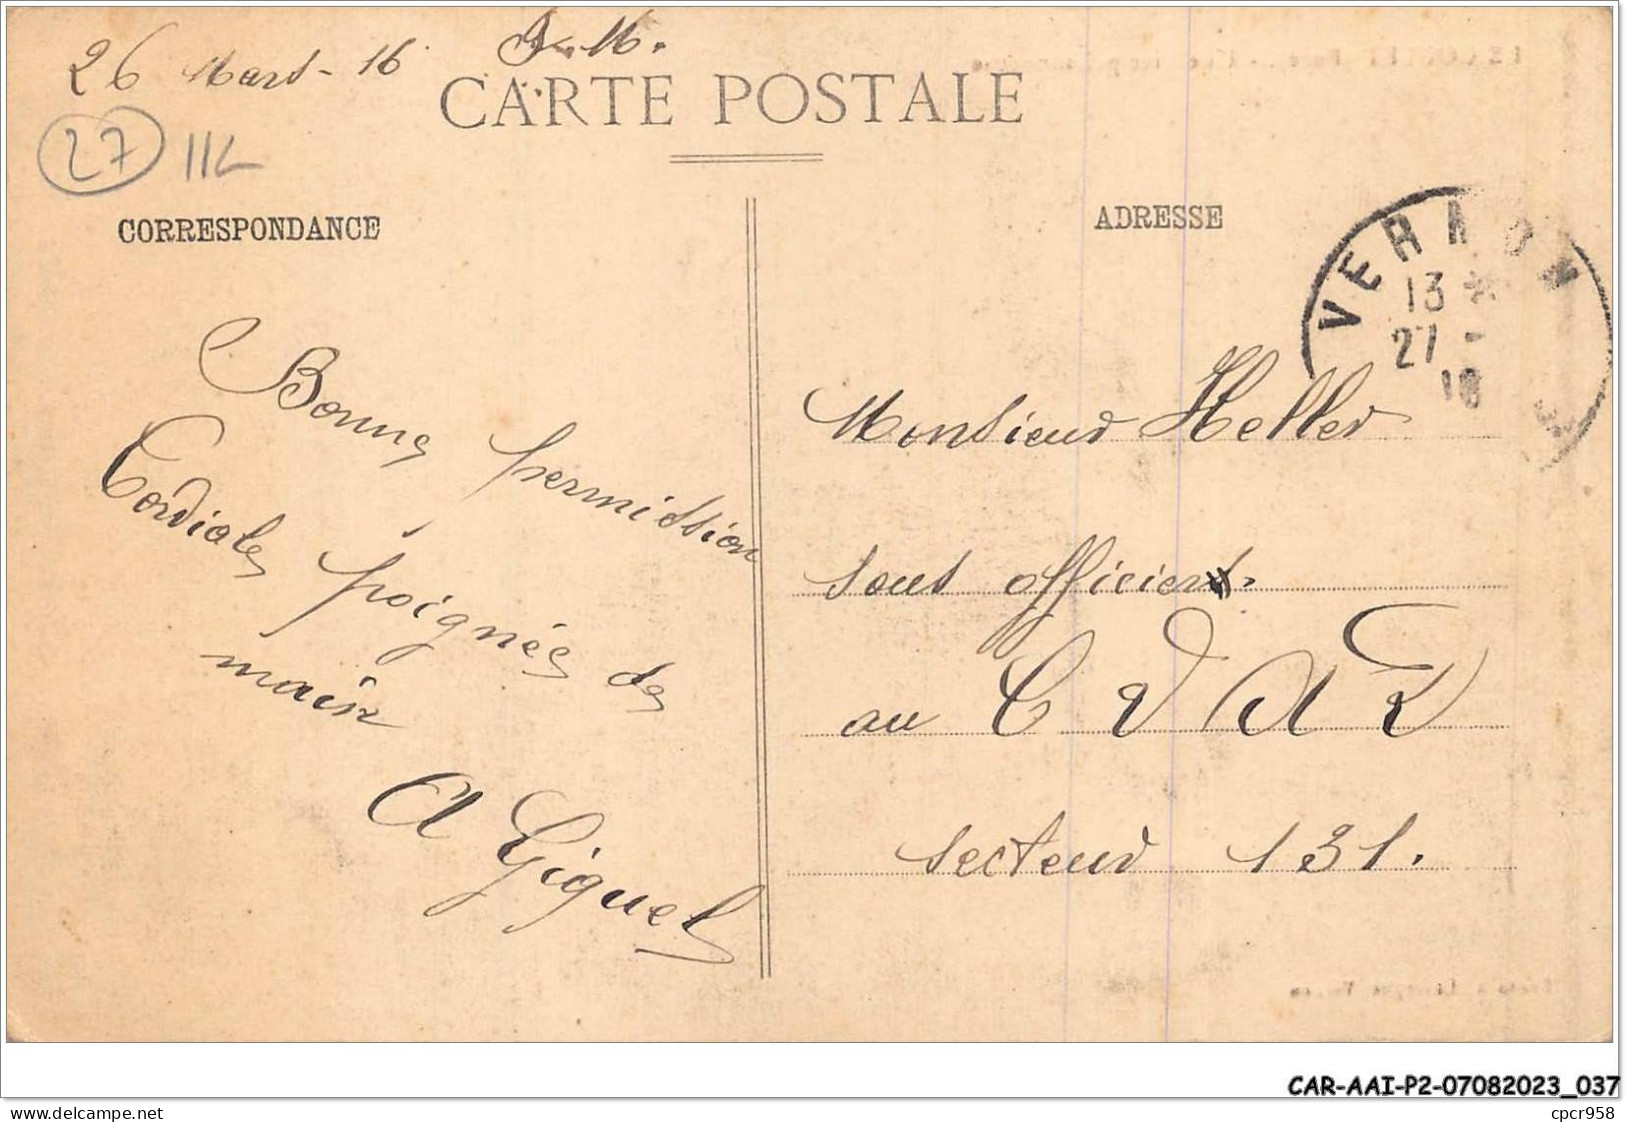 26 Mars - 16 F. M.
CARTE POSTALE
27 11L
CORRESPONDANCE
ADRESSE
VERNON
13 *
27 -
16
Bonne permission
Cordiales poignés de
main
A Giguel
Monsieur Heller
sous officier
au C V A D
secteur 131.
CAR-AAI-P2-07082023_037
cpcr958